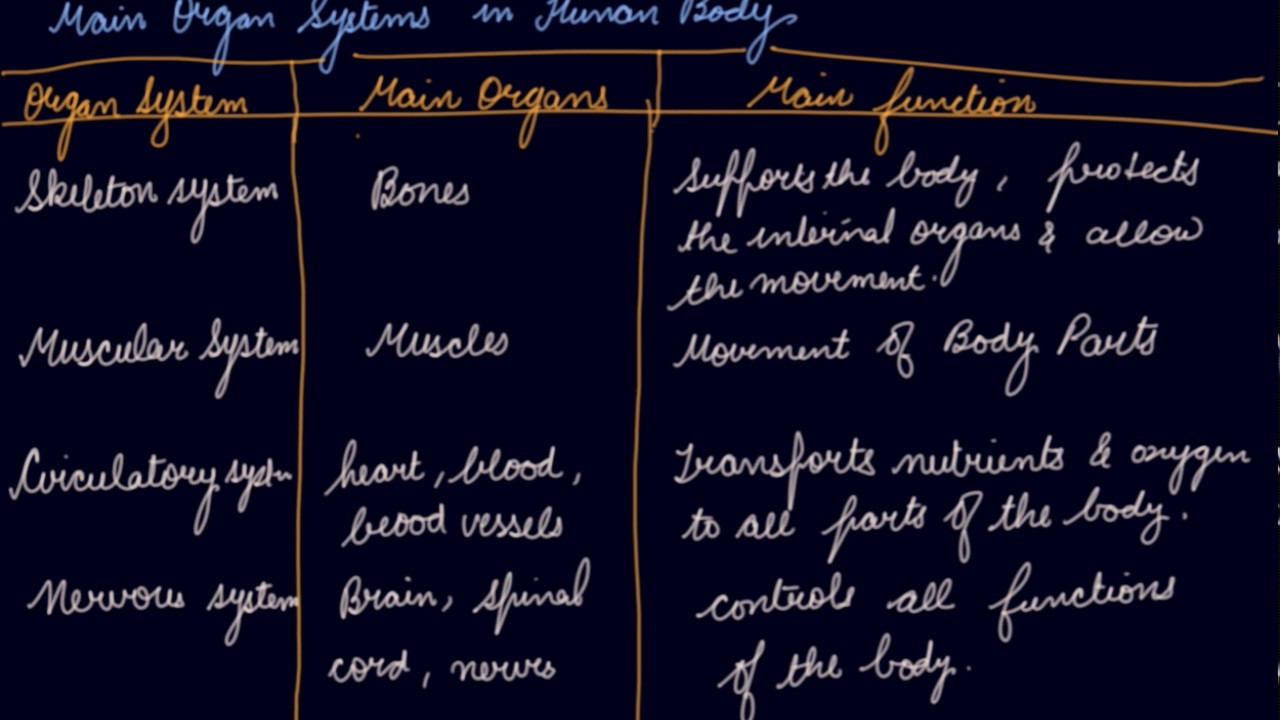 Main Organ Systems in Human Body
Organ System Main Organs Main function
Skeleton system Bones Supports the body, protects
the internal organs & allow
the movement.
Muscular System Muscles Movement of Body Parts
Circulatory system heart, blood, Transports nutrients & oxygen
blood vessels to all parts of the body.
Nervous system Brain, spinal controls all functions
cord, nerves of the body.